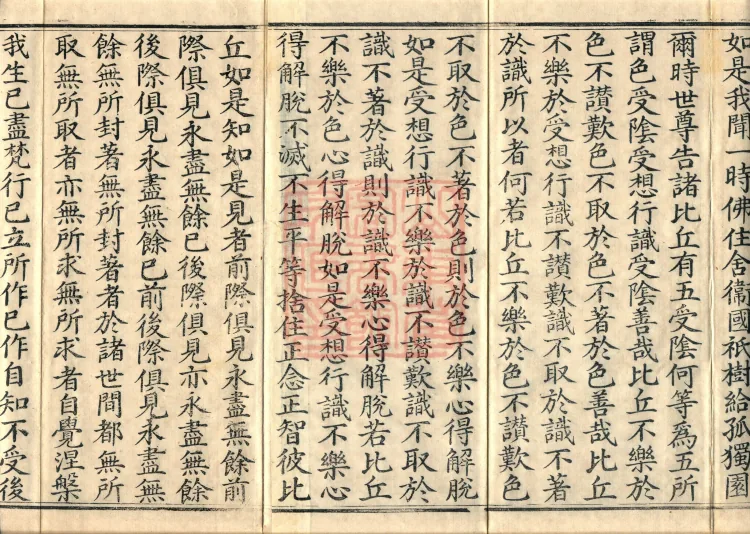 如是我聞一時佛住舍衛國祇樹給孤獨園
爾時世尊告諸比丘有五受陰何等為五所
謂色受陰受想行識受陰善哉比丘不樂於
色不讃歎色不取於色不著於色善哉比丘
不樂於受想行識不讃歎識不取於識不著
於識所以者何若比丘不樂於色不讃歎色
不取於色不著於色則於色不樂心得解脫
如是受想行識不樂於識不讃歎識不取於
識不著於識則於識不樂心得解脫若比丘
不樂於色心得解脫如是受想行識不樂心
得解脫不滅不生平等捨住正念正智彼比
丘如是知如是見者前際俱見永盡無餘前
際俱見永盡無餘已後際俱見亦永盡無餘
後際俱見永盡無餘已前後際俱見永盡無
餘無所封著無所封著者於諸世間都無所
取無所取者亦無所求無所求者自覺涅槃
我生已盡梵行已立所作已作自知不受後